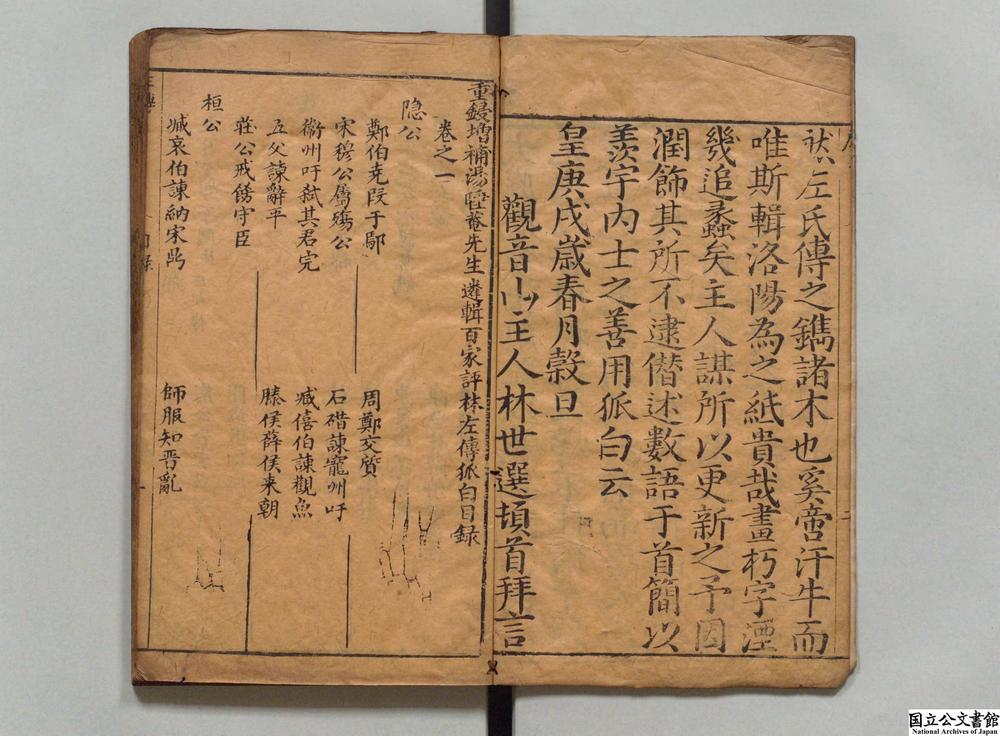 然左氏傳之鐫諸木也奚啻汗牛而
唯斯輯洛陽為之紙貴哉畫朽字湮
幾追蠡矣主人謀所以更新之予因
潤飾其所不逮僣述數語于首簡以
羨宇內士之善用狐白云
皇庚戌歲春月穀旦
觀音山主人林世選頓首拜言
重鋟增補湯睡菴先生遴輯百家評林左傳狐白目錄
卷之一
隐公
鄭伯克段于鄢
周鄭交質
宋穆公屬殤公
石碏諫寵州吁
衞州吁弒其君完
臧僖伯諫觀魚
五父諫辭平
滕侯薛侯来朝
莊公戒餝守臣
桓公
臧哀伯諫納宋鼎
師服知晋亂
国立公文書館
National Archives of Japan